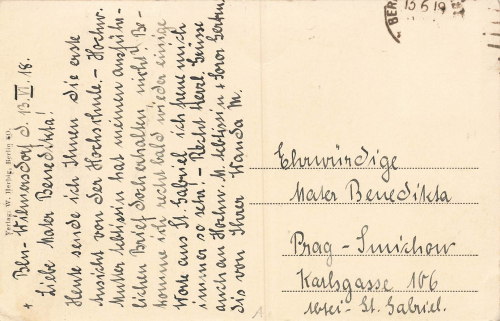 +
Bln-Wilmersdorf d. 13. VI. 18.
Liebe Mater Benedikta!
Heute sende ich Ihnen die erste
Ansicht von der Hochschule – Hochw.
Mutter Äbtissin hat meinen ausführ-
lichen Brief doch erhalten, nicht? Be-
komme ich recht bald wieder einige
Worte aus St. Gabriel, ich freue mich
immer so sehr! – Recht herzl. Grüsse
auch an Hochw. M. Äbtissin + Soror
dis von Ihrer Wanda M.
Verlag: W. Herbig, Berlin
BER
13 6 19
Ehrwürdige
Mater Benedikta
Prag – Smichow
Karlsgasse 106
Abtei – St. Gabriel.